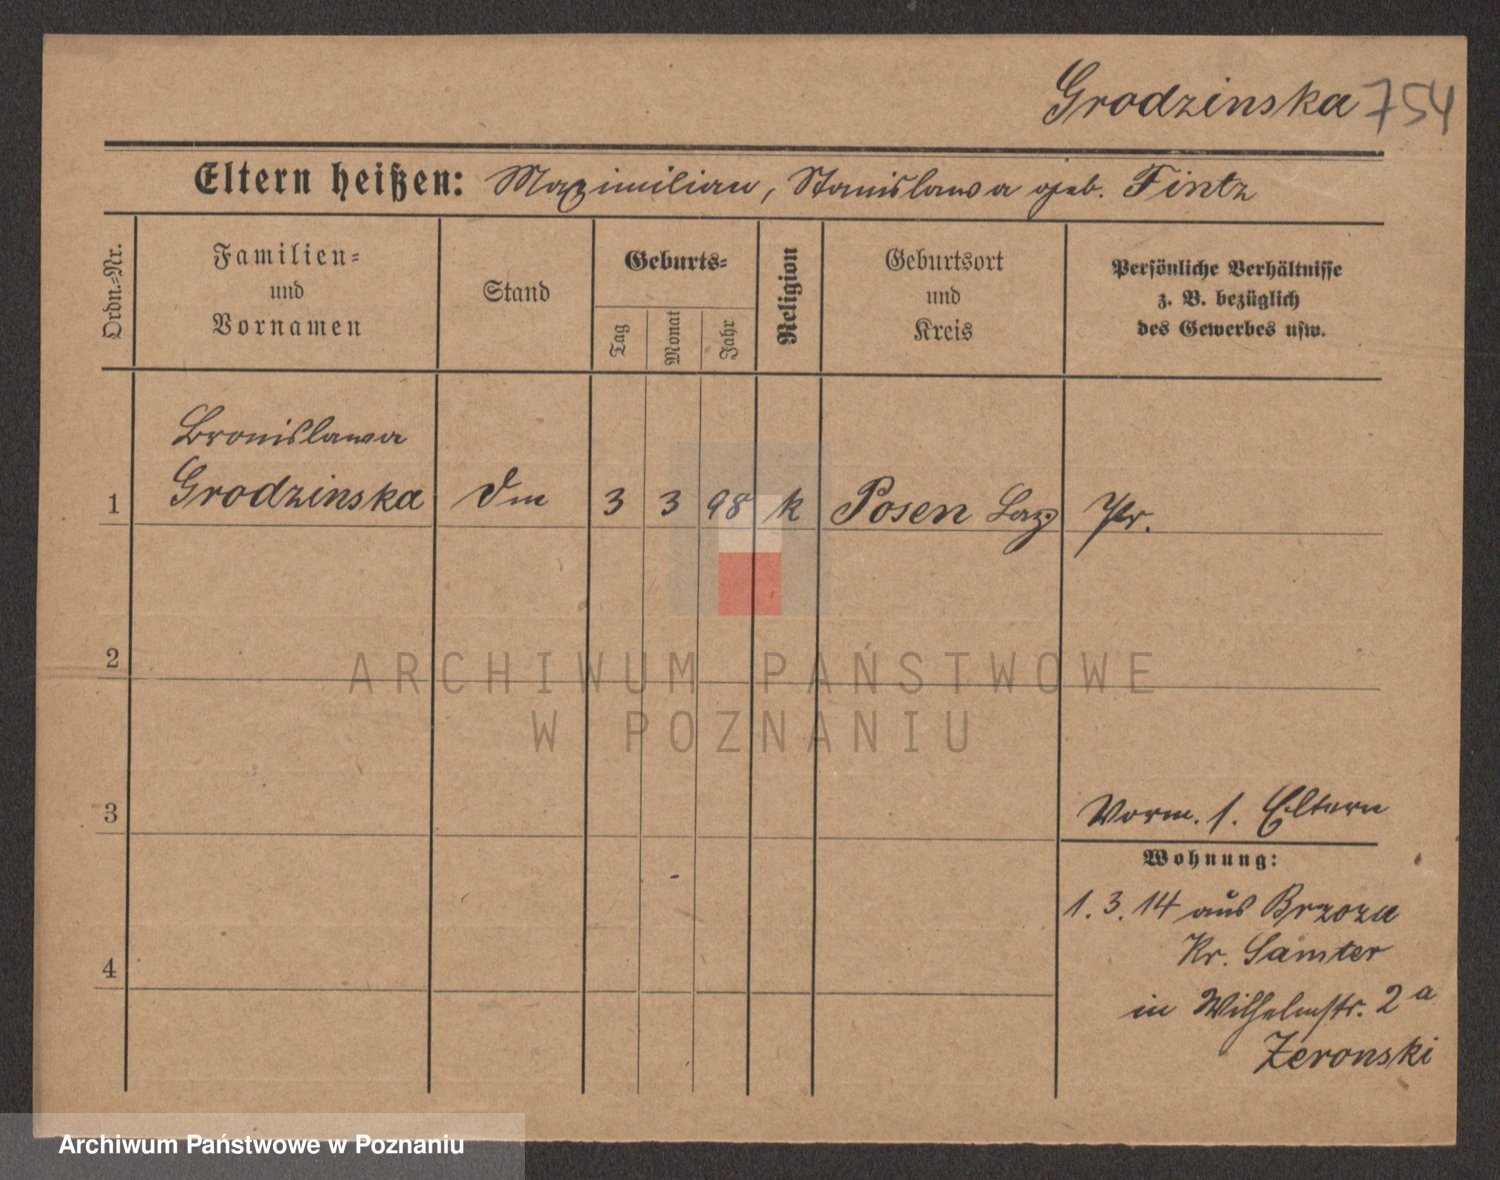 Grodzinska 754
Eltern heißen: Maximilian, Stanislawa geb. Fintz
Ordn.-Nr.
Familien-
und
Vornamen
Stand
Geburts-
Tag
Monat
Jahr
Religion
Geburtsort
und
Kreis
Persönliche Verhältnisse
z. B. bezüglich
des Gewerbes usw.
Bronislawa
1 Grodzinska 3 3 98 k Posen Laz. Pr.
2
3
Vorm. s. Eltern
Wohnung:
1. 3. 14 aus Brzoza
Kr. Samter
4
in Wilhelmstr. 2 a
Zeronski
ARCHIWUM PAŃSTWOWE
W POZNANIU
Archiwum Państwowe w Poznaniu